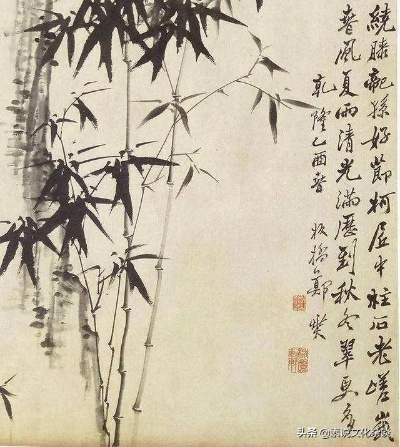 繞膝龍孫好節柯居中柱石老嵯峩
春風夏雨清光滿歷到秋冬翠更多
乾隆乙酉春 板橋鄭燮
头条